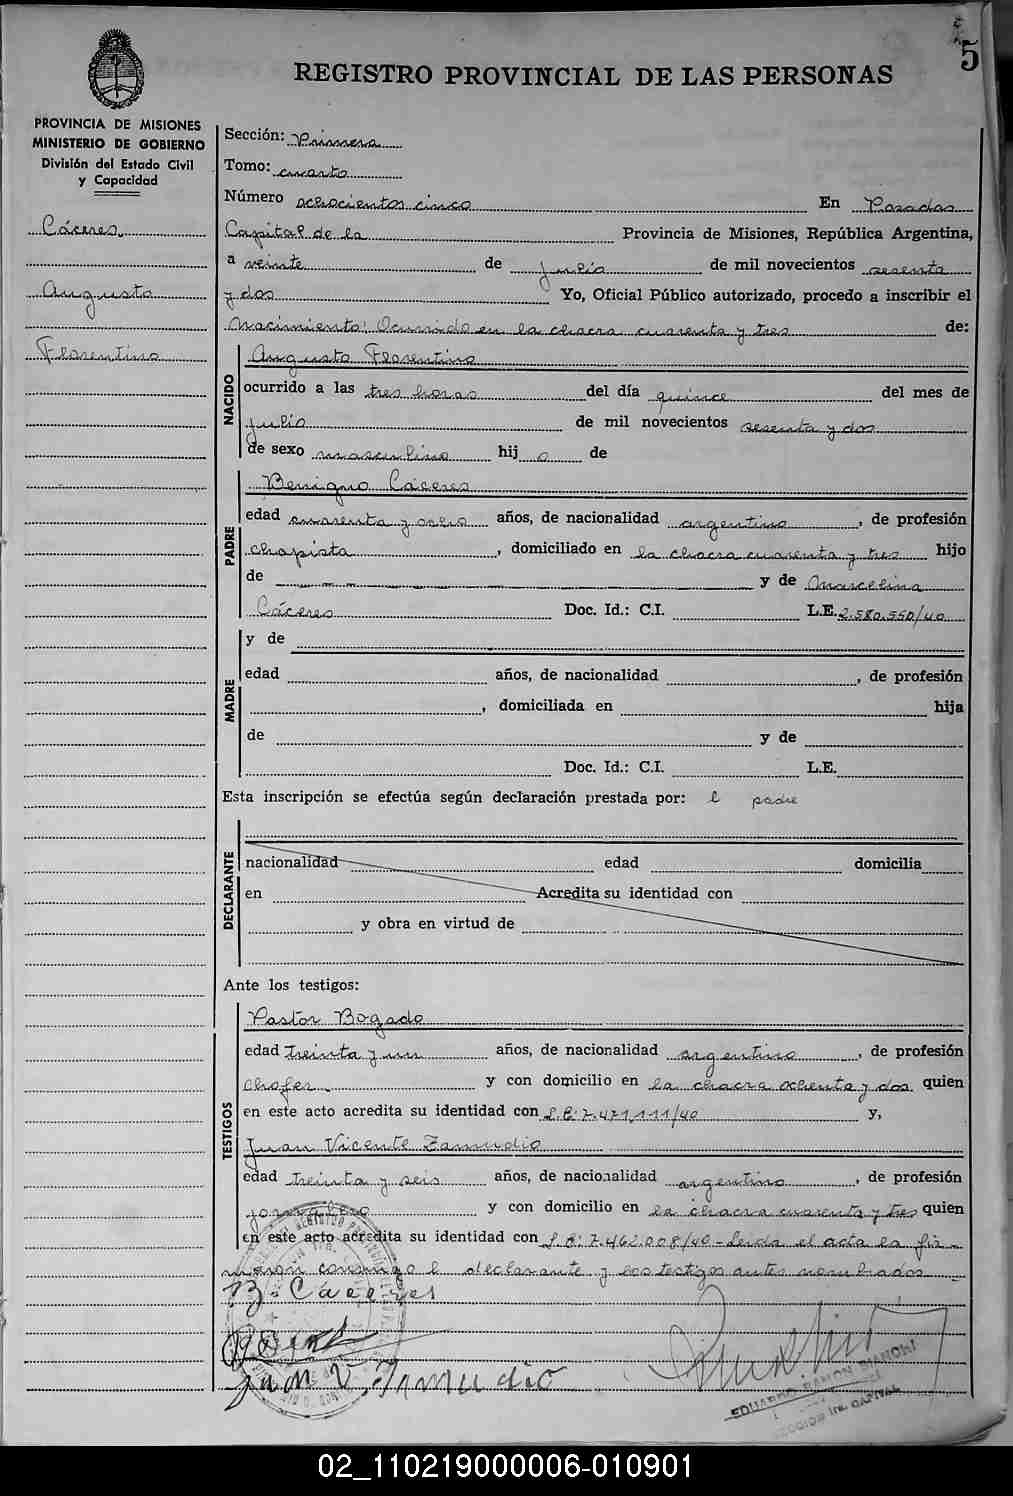 5
REGISTRO PROVINCIAL DE LAS PERSONAS
PROVINCIA DE MISIONES
MINISTERIO DE GOBIERNO
División del Estado Civil
y Capacidad
Cáceres
Augusto
Florentino
Sección: Primera
Tomo: cuarto
Número ochocientos cinco En Posadas
Capital de la Provincia de Misiones, República Argentina,
a veinte de julio de mil novecientos sesenta
y dos Yo, Oficial Público autorizado, procedo a inscribir el
Nacimiento: Ocurrido en la chacra cuarenta y tres de:
NACIDO
Augusto Florentino
ocurrido a las tres horas del día quince del mes de
julio de mil novecientos sesenta y dos
de sexo masculino hij o de
PADRE
Benigno Cáceres
edad cuarenta y ocho años, de nacionalidad argentino, de profesión
chapista, domiciliado en la chacra cuarenta y tres hijo
de — — — y de Marcelina
Cáceres Doc. Id.: C.I. L.E. 2.580.550/40
MADRE
y de
edad años, de nacionalidad , de profesión
, domiciliada en hija
de y de
Doc. Id.: C.I. L.E.
Esta inscripción se efectúa según declaración prestada por: el padre
DECLARANTE
nacionalidad edad domicilia
en Acredita su identidad con
y obra en virtud de
Ante los testigos:
TESTIGOS
Pastor Bogado
edad treinta y un años, de nacionalidad argentino, de profesión
chofer y con domicilio en la chacra ochenta y dos quien
en este acto acredita su identidad con L.E: 7.471.111/40 y,
Juan Vicente Zamudio
edad treinta y seis años, de nacionalidad argentino, de profesión
jornalero y con domicilio en la chacra cuarenta y tres quien
en este acto acredita su identidad con L.E: 7.462.008/40 - Leida el acta la fir
maron conmigo el declarante y los testigos antes nombrados
B. Cáceres
Juan V. Zamudio
EDUARDO RAMON BIANCHI
SECCION 1ra. CAPITAL
02_110219000006-010901